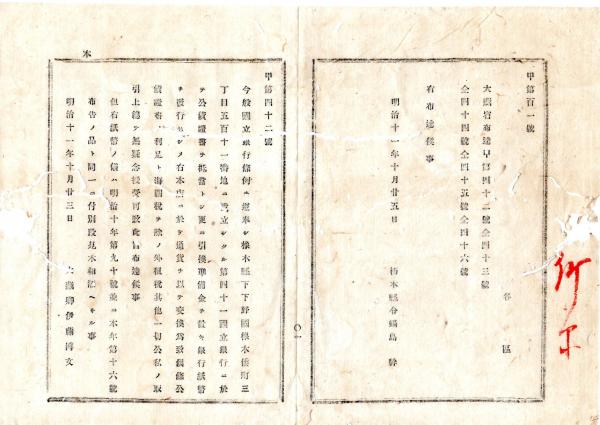 甲第百一號
各區
大藏省布達甲第四十二號仝四十三號
仝四十四號仝四十五號仝四十六號
右布達候事
明治十一年十月廿五日
栃木縣令鍋島幹
〇一
甲第四十二號
今般國立銀行條例ニ遵奉シ栃木縣下下野國栃木倭町三
丁目五百十一番地ニ設立シタル第四十一國立銀行ニ於
テ公債證書ヲ抵當トシ更ニ引換準備金ヲ設ケ銀行紙幣
ヲ發行セシメ右本店ニ於テ通貨ヲ以テ交換爲致候條公
債證書ノ利足ト海關稅ヲ除ノ外租稅其他一切公私ノ取
引上總テ無疑念授受可致此旨布達候事
但右紙幣ノ儀ハ明治十年第九十號並ニ本年第十六號
布告ノ品ト同一ニ付別段見本相添ヘサル事
明治十一年十月廿三日
大藏卿伊藤博文
本